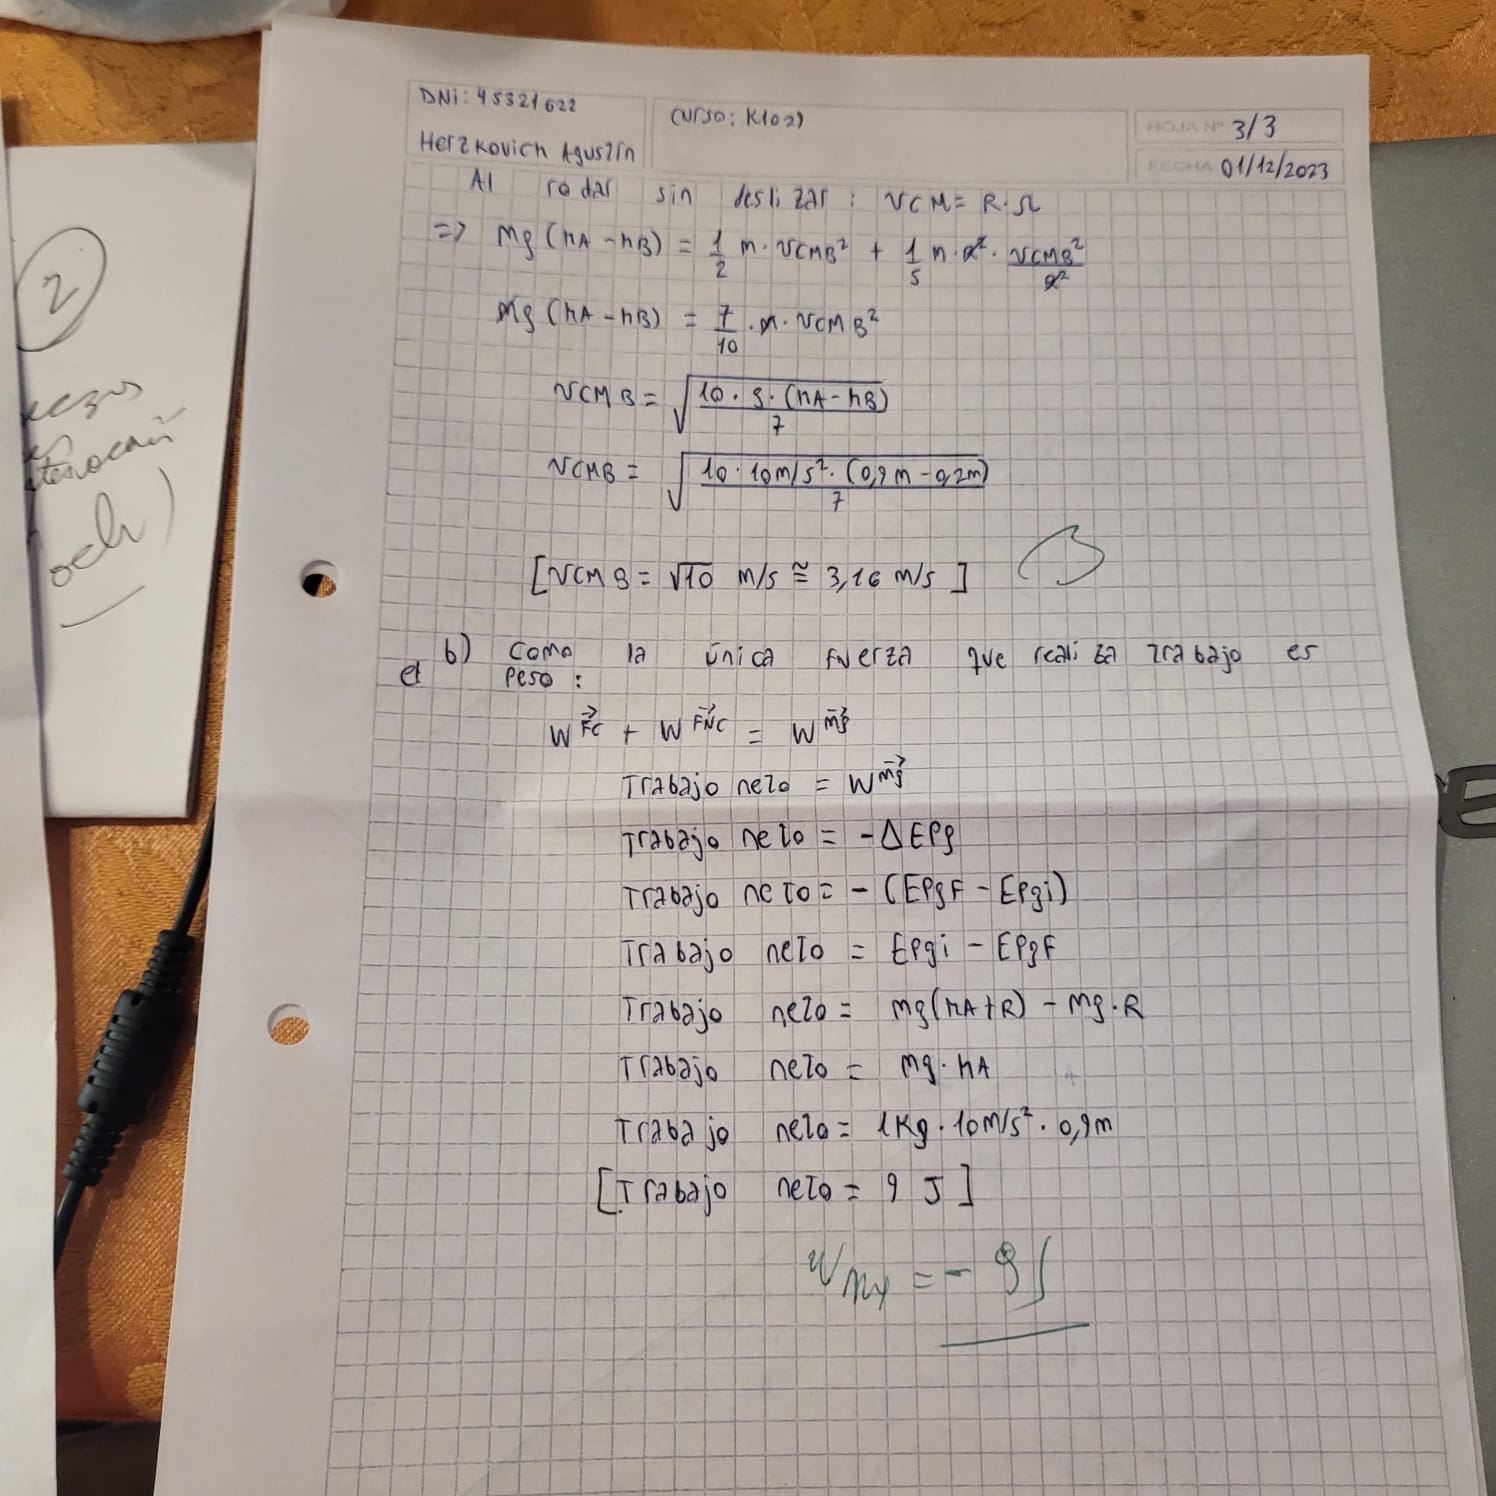 DNi: 45321622
Herzkovich Agustín
Curso: K1029
HOJA Nº 3/3
FECHA 01/12/2023
Al rodar sin deslizar : VCM = R·Ω
=> mg (hA - hB) = 1/2 m · VCMB² + 1/5 m · R² · VCMB²/R²
mg (hA - hB) = 7/10 · m · VCMB²
VCMB = √(10 · g · (hA - hB) / 7)
VCMB = √(10 · 10m/s² · (0,9m - 0,2m) / 7)
[VCMB = √10 m/s ≅ 3,16 m/s ]
b) Como la única fuerza que realiza trabajo es
el peso :
W FC + W FNC = W mg
Trabajo neto = W mg
Trabajo neto = - ΔEPg
Trabajo neto = - (EPgF - EPgi)
Trabajo neto = EPgi - EPgF
Trabajo neto = mg(hA+R) - mg·R
Trabajo neto = mg · hA
Trabajo neto = 1Kg · 10m/s² · 0,9m
[Trabajo neto = 9 J ]
= - 9 J
2